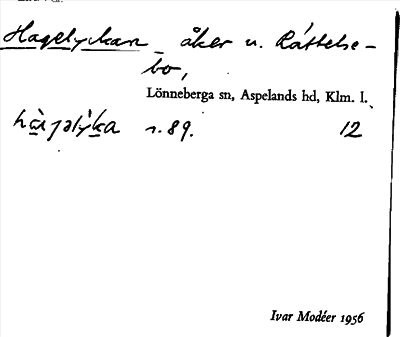 Hagelyckan åker u. Råttelse-
bo,
Lönneberga sn, Aspelands hd, Klm. l.
12
Ivar Modéer 1956